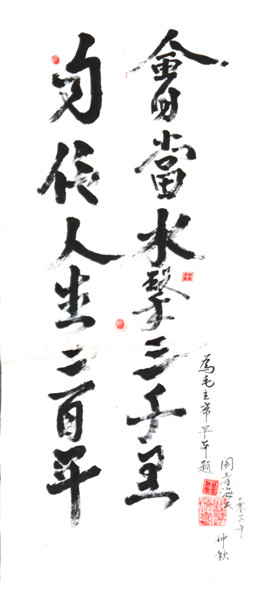 會當水擊三千里
自信人生二百年
為毛主席早年題
仲秋